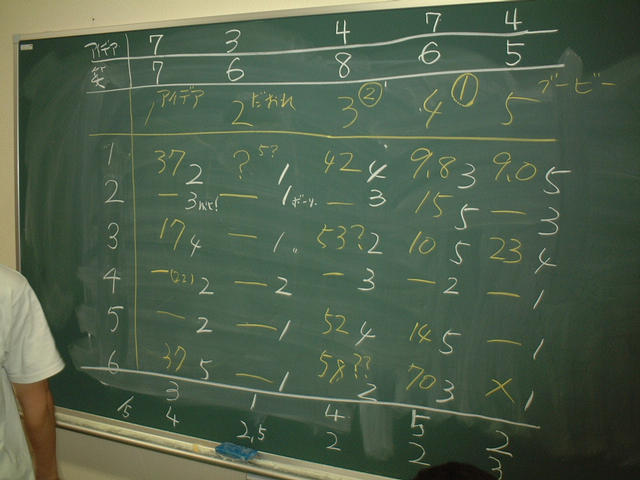 アイデア 7 3 4 7 4
笑 7 6 8 6 5
1 アイデア 2 だおれ 3 ② 4 ① 5 ブービー
1 37 2 ? 5? 1 42 4 9.8 3 9.0 5
2 — 3 — 1 — 3 15 5 — 3
3 17 4 — 1 〃 53? 2 10 5 23 4
4 — (22) 2 — 2 — 3 — 2 — 1
5 — 2 — 1 52 4 14 5 — 1
6 37 5 — 1 58?? 2 70 3 × 1
3 1 4 5 2
4 2,5 2 2 3